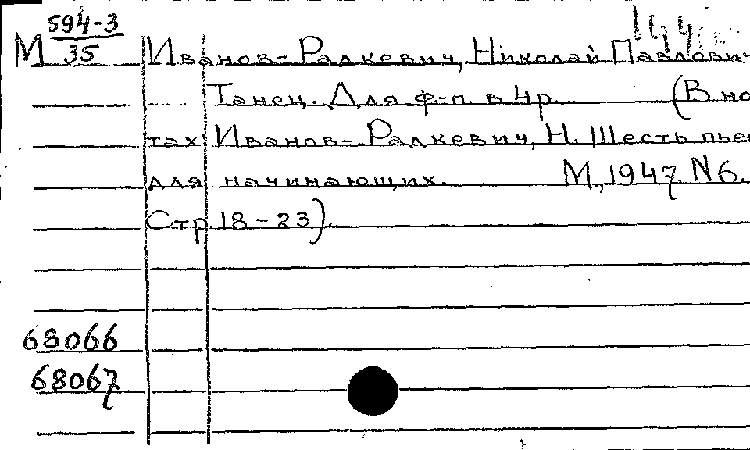 М 594-3/35
Иванов-Радкевич, Николай Павлови
Танец. Для ф-п. в 4 р. (В но
тах: Иванов-Радкевич, Н. Шесть пьес
для начинающих. М., 1947. № 6.
Стр. 18-23).
68066
68067